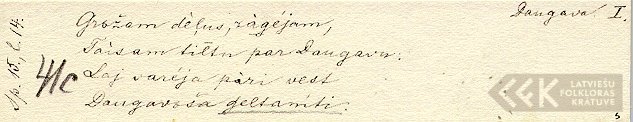 Daugava. I.
Sp. 15, l. 14.
Grožam dēļus, zāgējam,
Taisam tiltu par Daugavu:
Laj varēja pāri vest
Daugavėša geltamti.
41c
LATVIEŠU
FOLKLORAS
KRĀTUVE
5